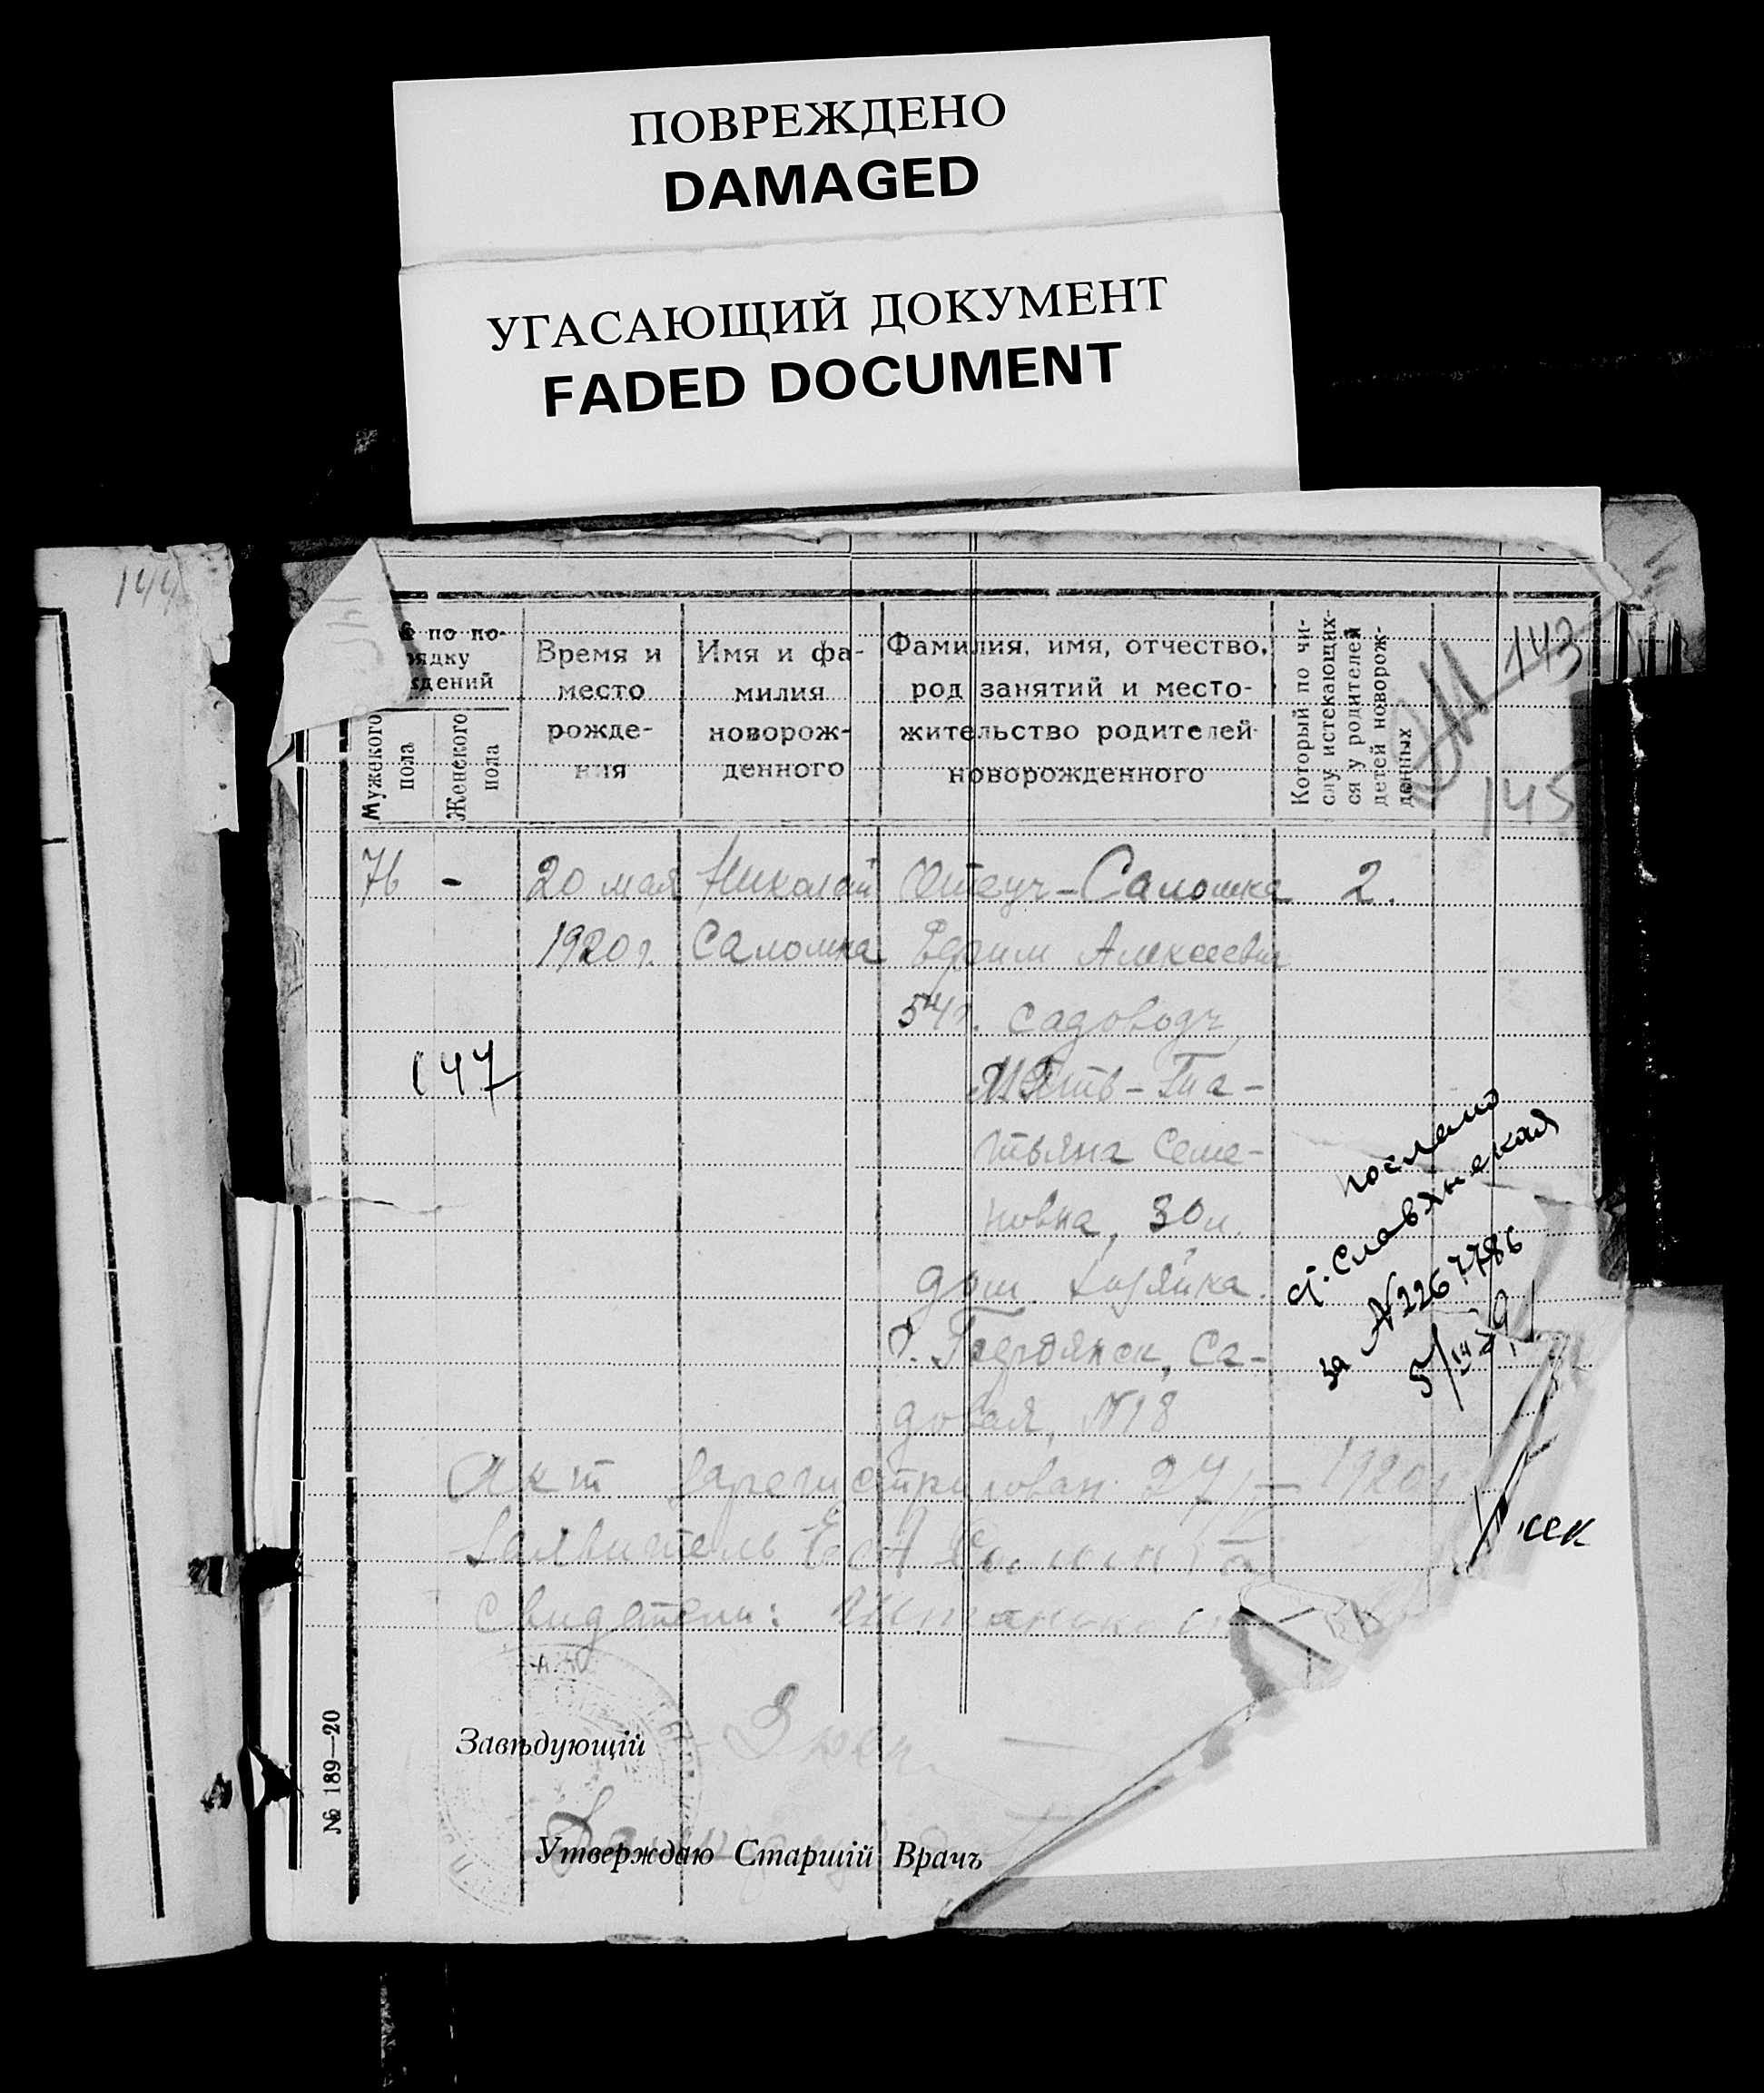 ПОВРЕЖДЕНО
DAMAGED
УГАСАЮЩИЙ ДОКУМЕНТ
FADED DOCUMENT
144
№ по по-
рядку
ждений
Мужеского
пола
Женского
пола
Время и
место
рожде-
ния
Имя и фа-
милия
новорож-
денного
Фамилия, имя, отчество,
род занятий и место-
жительство родителей
новорожденного
Который по чи-
слу истекающих-
ся у родителей
детей новорож-
денных
143
145
76 - 20 мая Николай Отец - Саломка 2.
1920 г. Саломка Ефим Алексеевич
54 г. садовод,
147
Мать - Та-
тьяна Семе-
новна, 30 л.
дом. хозяйка.
г. Бердянск, Са-
довая, №18
послано
ст. Славянская
за №2267786
Акт зарегистрирован 27/ 1920 г.
Заявитель Е. А.
Свидетели:
Завѣдующій
Утверждаю Старшій Врачъ
№ 189—20